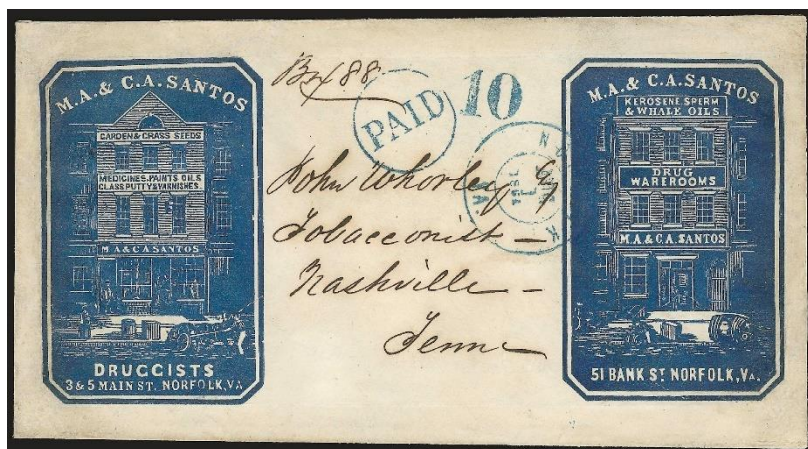 M.A. & C.A. SANTOS
GARDEN & GRASS SEEDS
MEDICINES, PAINTS OILS
GLASS PUTTY & VARNISHES.
M.A & C.A SANTOS
DRUGGISTS
3 & 5 MAIN ST. NORFOLK, VA
Box 88
PAID
10
John Whorley
Tobacconist —
Nashville —
Tenne
M.A. & C.A. SANTOS
KEROSENE SPERM
& WHALE OILS
DRUG
WAREROOMS
M.A. & C.A. SANTOS
51 BANK ST NORFOLK, VA.